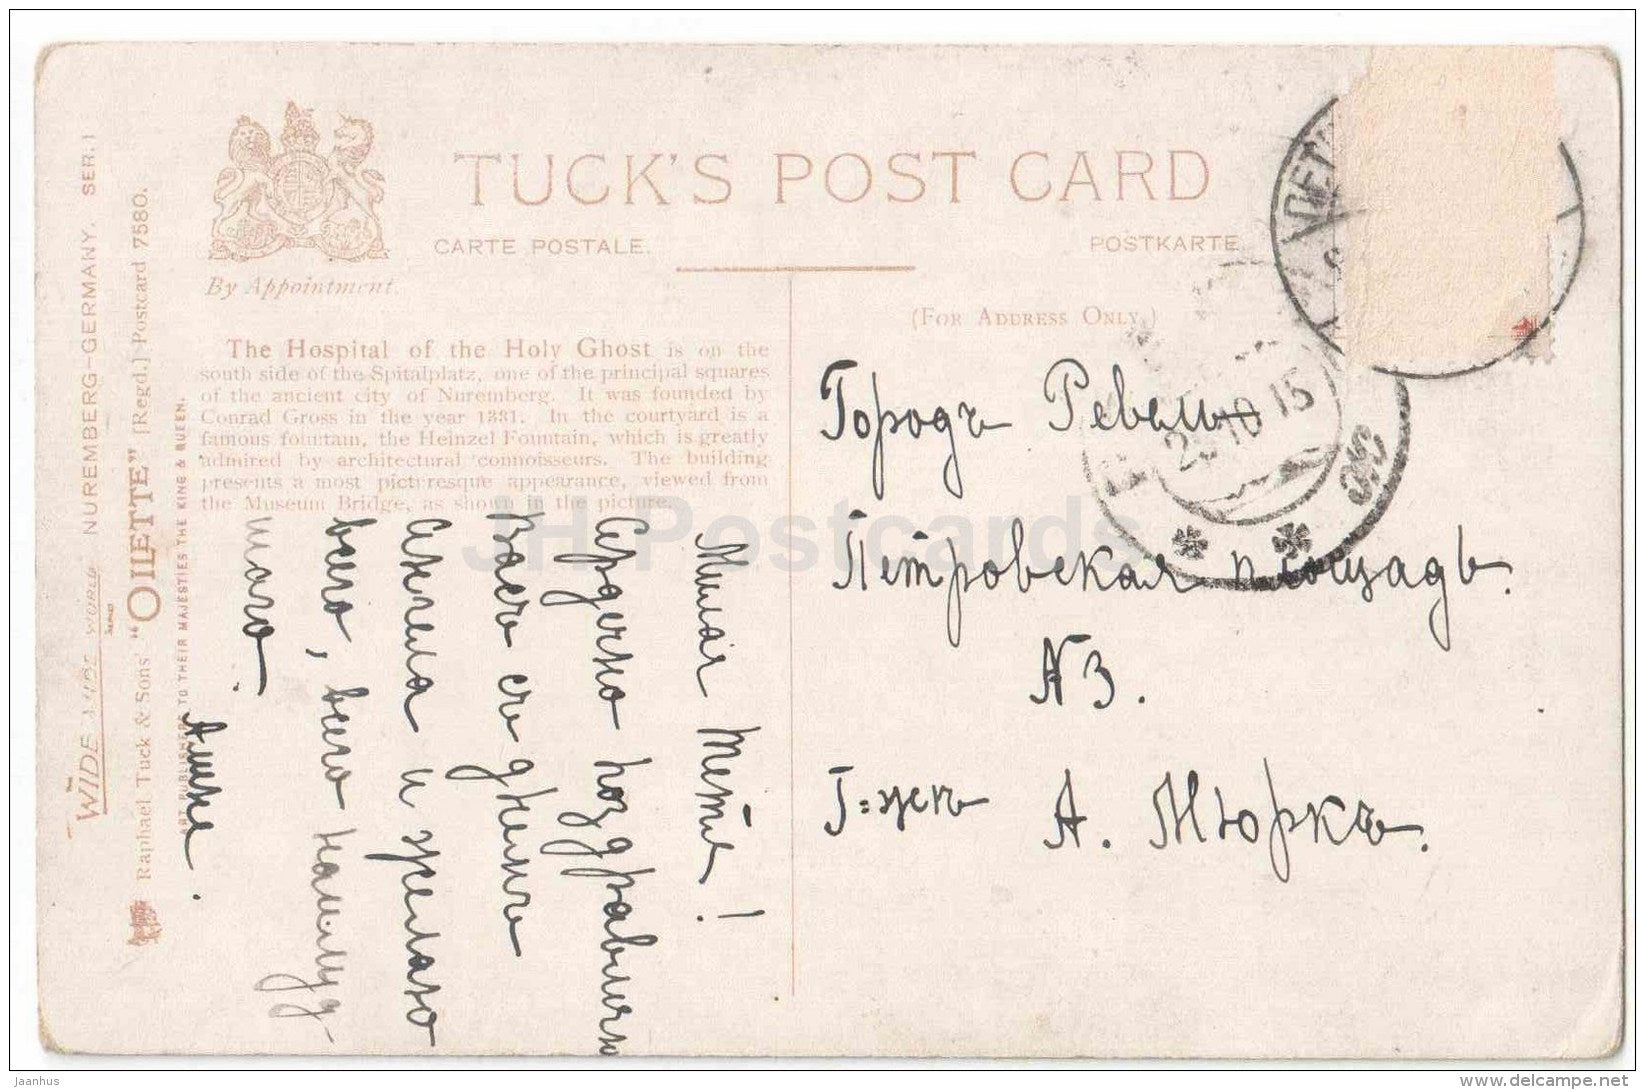 TUCK'S POST CARD
CARTE POSTALE.
POSTKARTE
By Appointment.
(FOR ADDRESS ONLY.)
The Hospital of the Holy Ghost is on the
south side of the Spitalplatz, one of the principal squares
of the ancient city of Nuremberg. It was founded by
Conrad Gross in the year 1331. In the courtyard is a
famous fountain, the Heinzel Fountain, which is greatly
admired by architectural connoisseurs. The building
presents a most picturesque appearance, viewed from
the Museum Bridge, as shown in the picture.
Милая Тетя!
Сердечно поздравляю
Васъ съ днемъ
Ангела и желаю
всего, всего наилуч
шаго.
Алиня.
Городъ Ревель
Петровская площадь.
N3.
Г=жѣ А. Мюркъ.
20 10 15
WIDE WIDE WORLD NUREMBERG-GERMANY. SER. I
Raphael Tuck & Sons' "OILETTE" [Regd.] Postcard 7580.
ART PUBLISHERS TO THEIR MAJESTIES THE KING & QUEEN.
JH Postcards
Jaanhus
delcampe.net